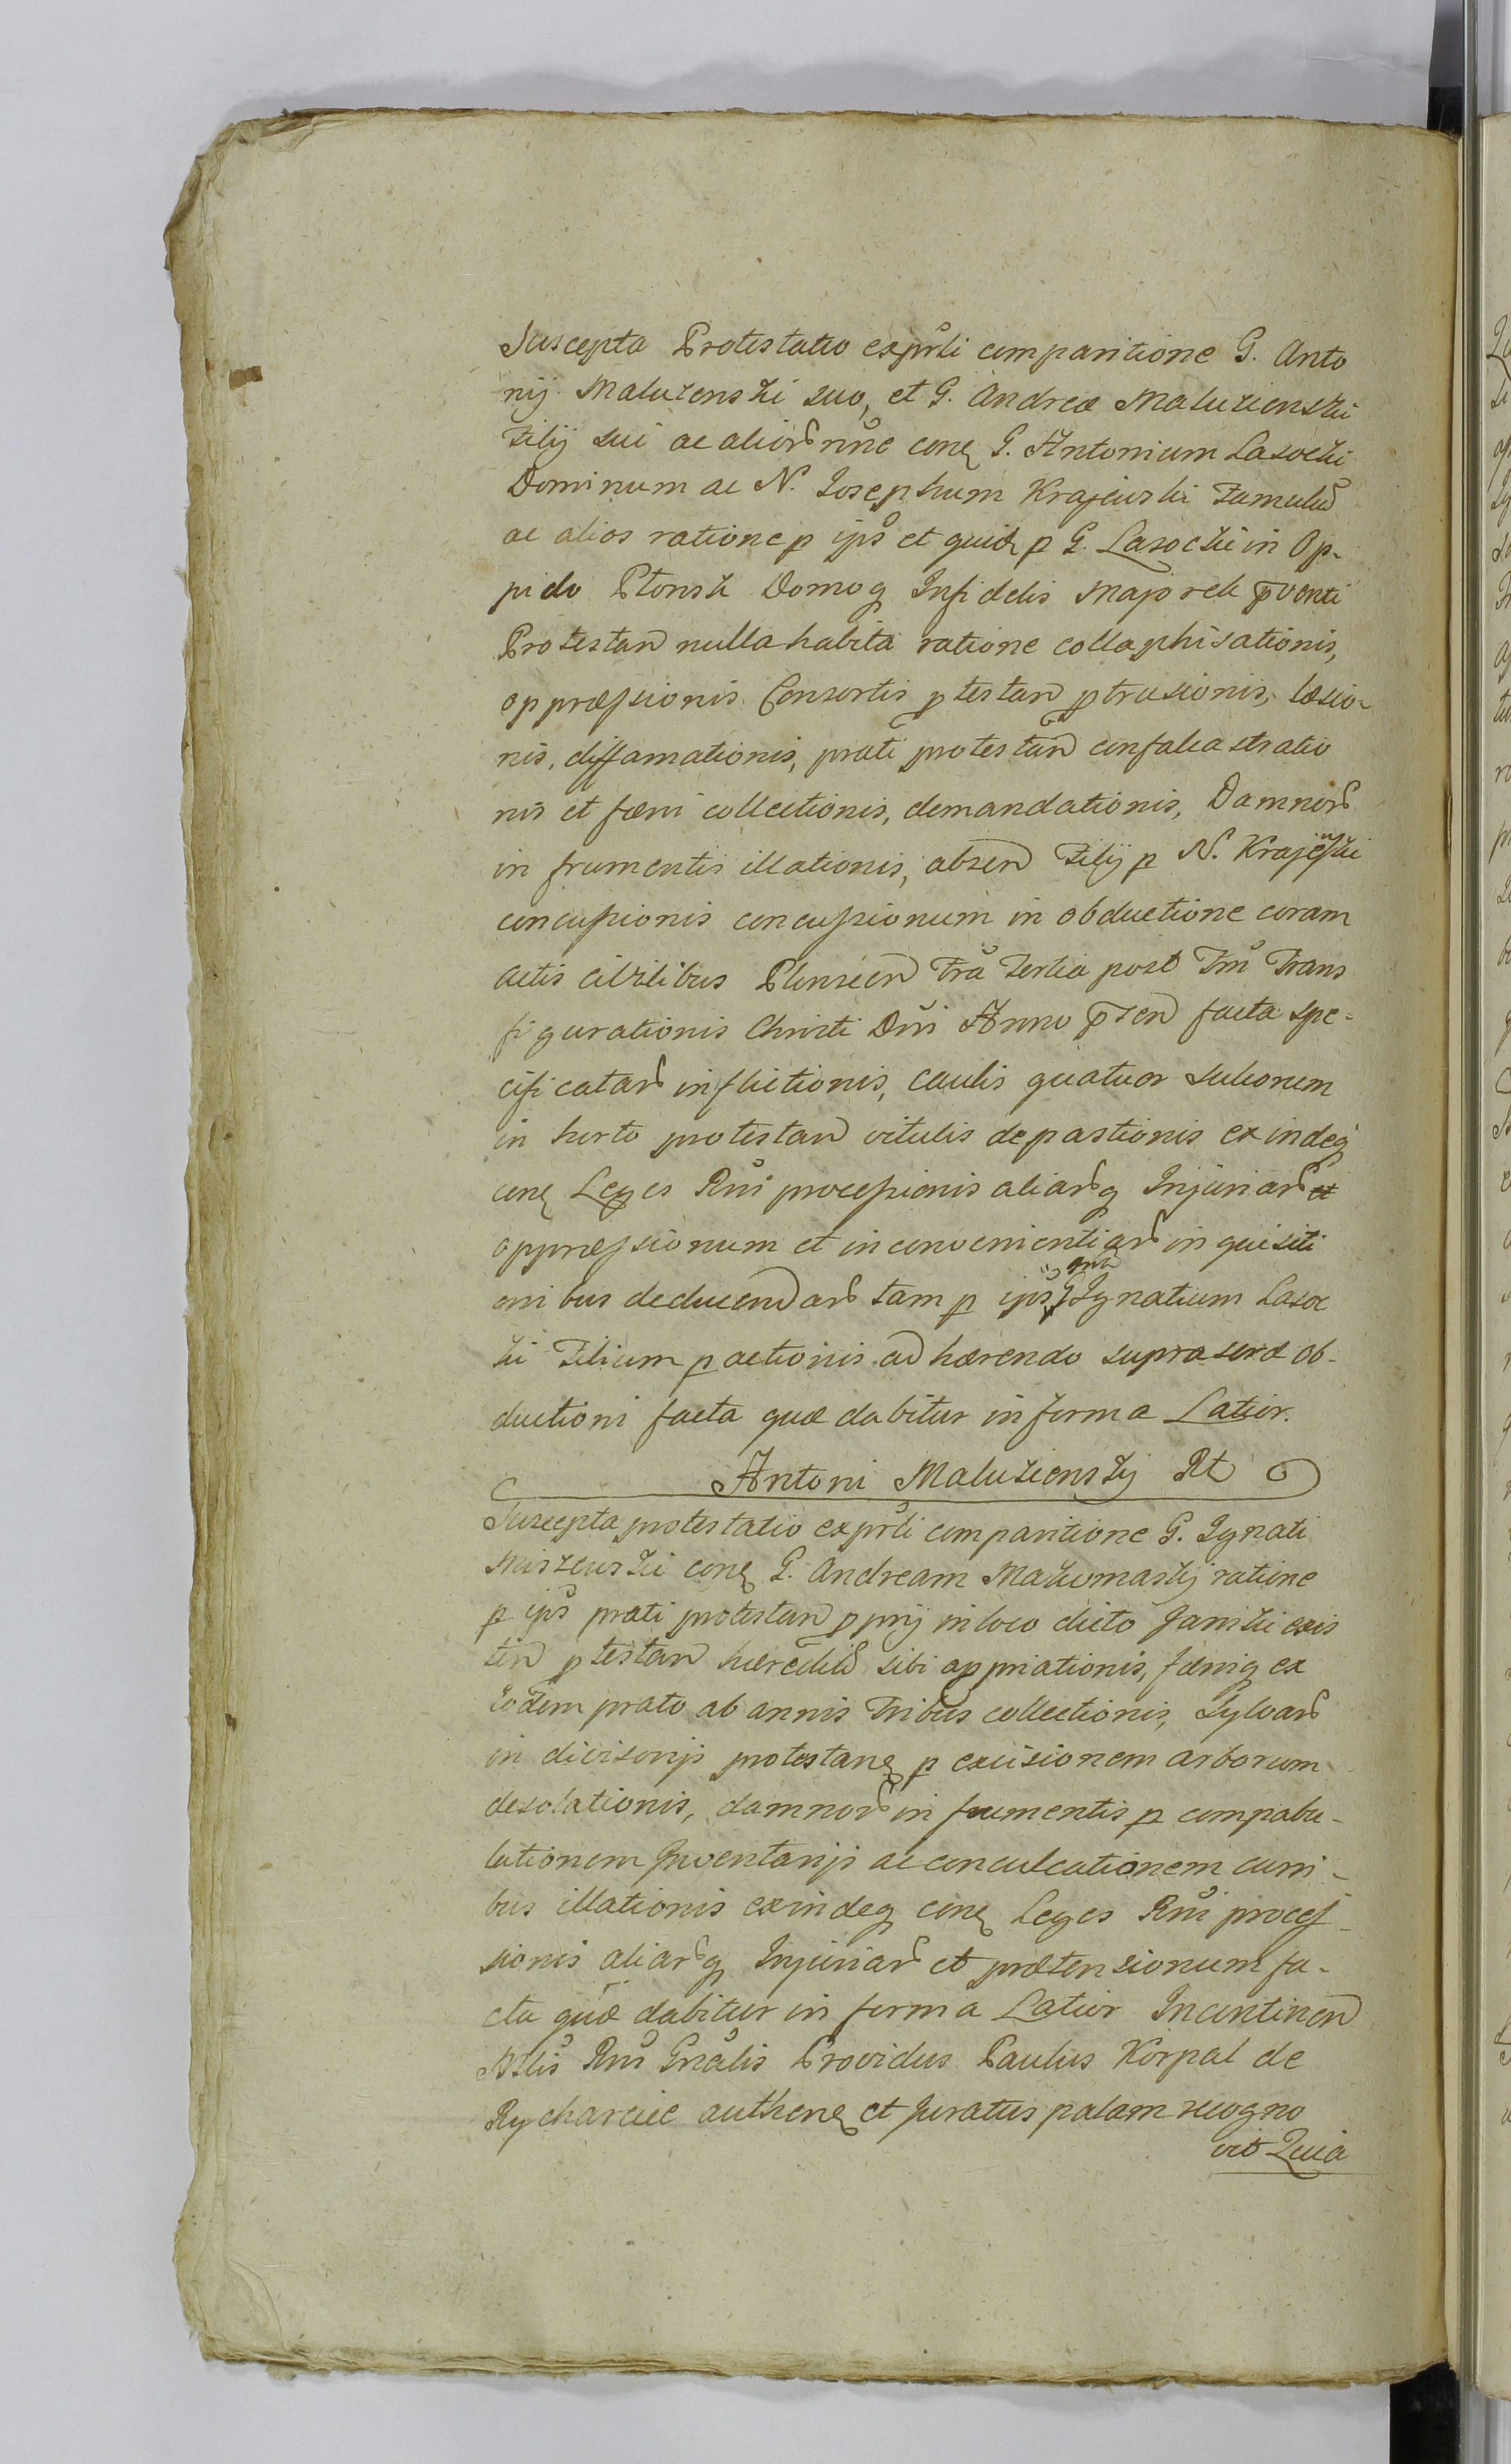 Suscepta Protestatio exprli comparitione G. Anto
nij Maluzenski suo, et G. Andreæ Maluzienski
Filij sui ac alior noe conq G. Antonium Lasocki
Dominum ac N. Josephum Krajewski Famulu
ac alios ratione p ips et quid p G. Lasocki in Op-
pido Plonsk Domoq Infidelis Majorek pventi
Protestan nulla habita ratione collaphisationis,
oppræssionis Consortis ptestan ptrusionis, læsio-
nis, diffamationis, prati protestan confalcastratio
nis et fæni collectionis, demandationis, Damnor
in frumentis illationis, absen Filij p N. Krajewski
concussionis concussionum in obductione coram
Actis civilibus Plonscen Fra Tertia post Fm Trans
figurationis Christi Dni Anno psen facta spe-
cificatar inflictionis, caulis quatuor sulcorum
in horto protestan vitulis depastionis exindeq
conq Leges Rni processionis aliarq Injuriar et
oppræssionum et inconvenientiar inquisiti
onibus deducendar tam p ips G Ignatium Lasoc
ki Filium pactionis adhærendo suprascræ ob-
ductioni facta quæ dabitur in forma Latior.
Antoni Maluzienskj Rt
Suscepta protestatio exprli comparitione G. Ignati
Miszewski conq G. Andream Makomaskj ratione
p ips prati protestan pprij in loco dicto Janiski exis
ten ptestan hæredil sibi appriationis, fæniq ex
eodem prato ab annis Tribus collectionis, Sylvar
in divisorijs protestanq p excisionem arborum
desolationis, damnor in frumentis p compabu-
lationem Inventarijs ac conculcationem curri-
bus illationis exindeq conq Leges Rni proces-
sionis aliarq Injuriar et prætensionum fa-
cta quæ dabitur in forma Latior Incontinen
Mlis Rni Gnalis Providus Paulus Korpal de
Rycharcice authenq et Juratus palam recogno
vit Quia